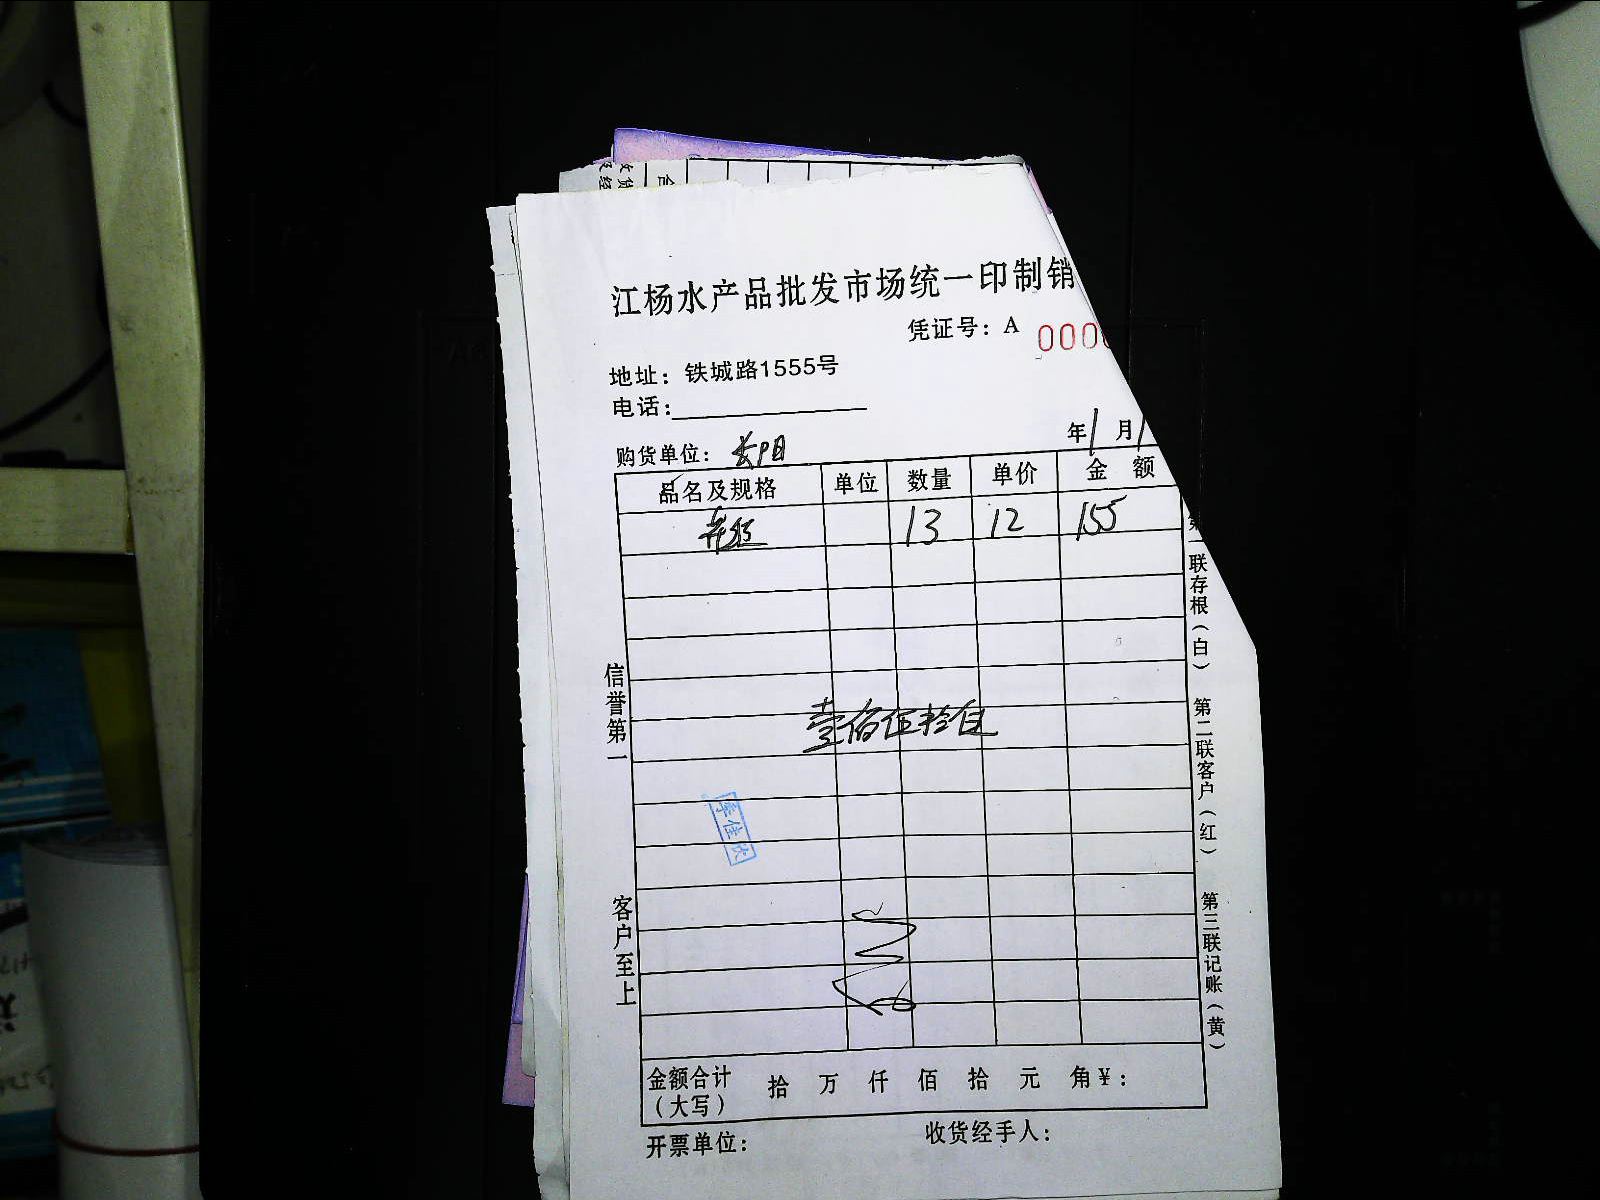 江杨水产品批发市场统一印制销
凭证号：A 000
地址：铁城路1555号
电话：
购货单位：长阳
年1月1
品名及规格 单位 数量 单价 金额
13 12 155
壹佰伍拾伍
信誉第一
客户至上
联存根（白）
第二联客户（红）
第三联记账（黄）
金额合计（大写） 拾 万 仟 佰 拾 元 角 ¥：
开票单位：
收货经手人：